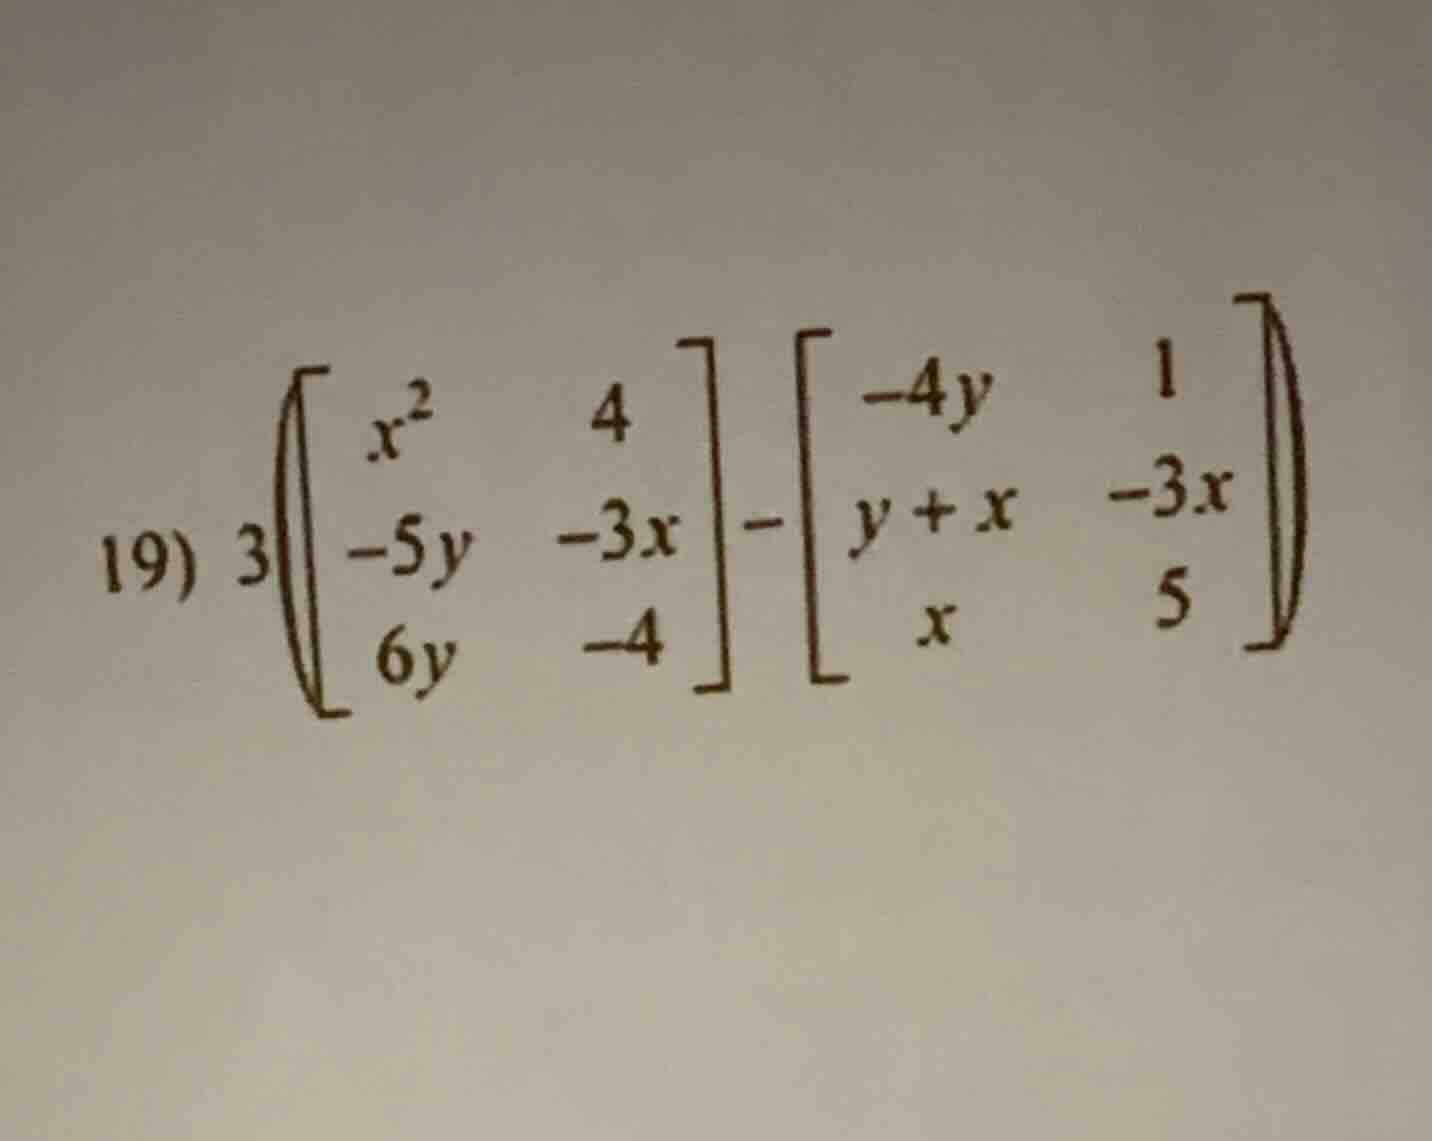 19) 3([x² 4; -5y -3x; 6y -4] - [-4y 1; y + x -3x; x 5])